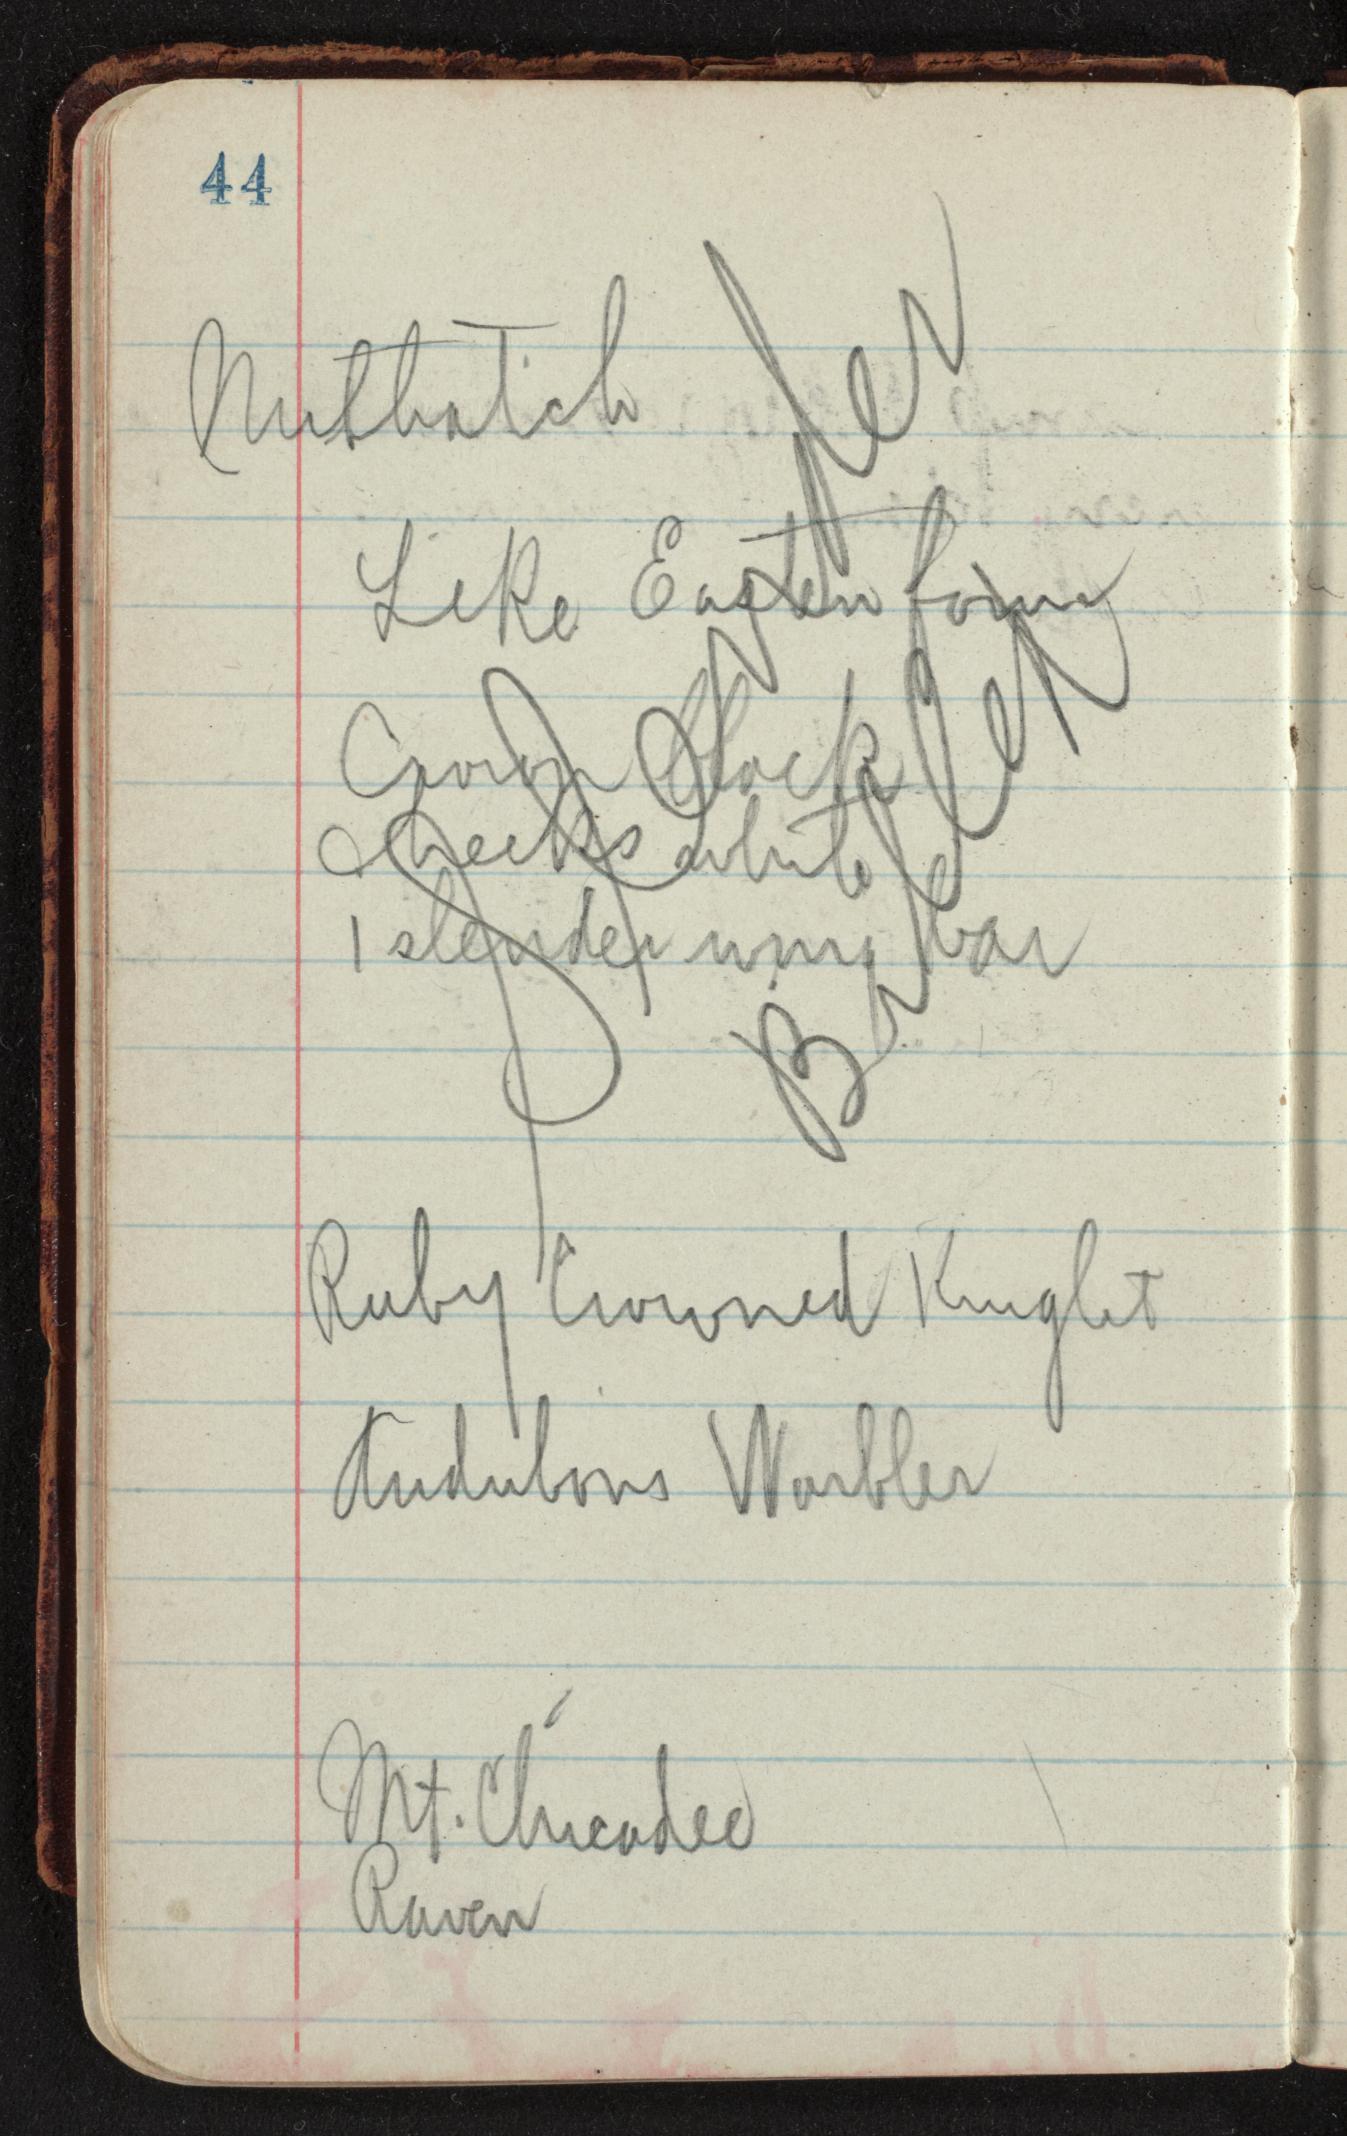 44
Nuthatch
Like Eastern form
Crown black
Cheeks white
1 slender wing bar
Ruby Crowned Kinglet
Audubons Warbler
Mt. Chicadee
Raven